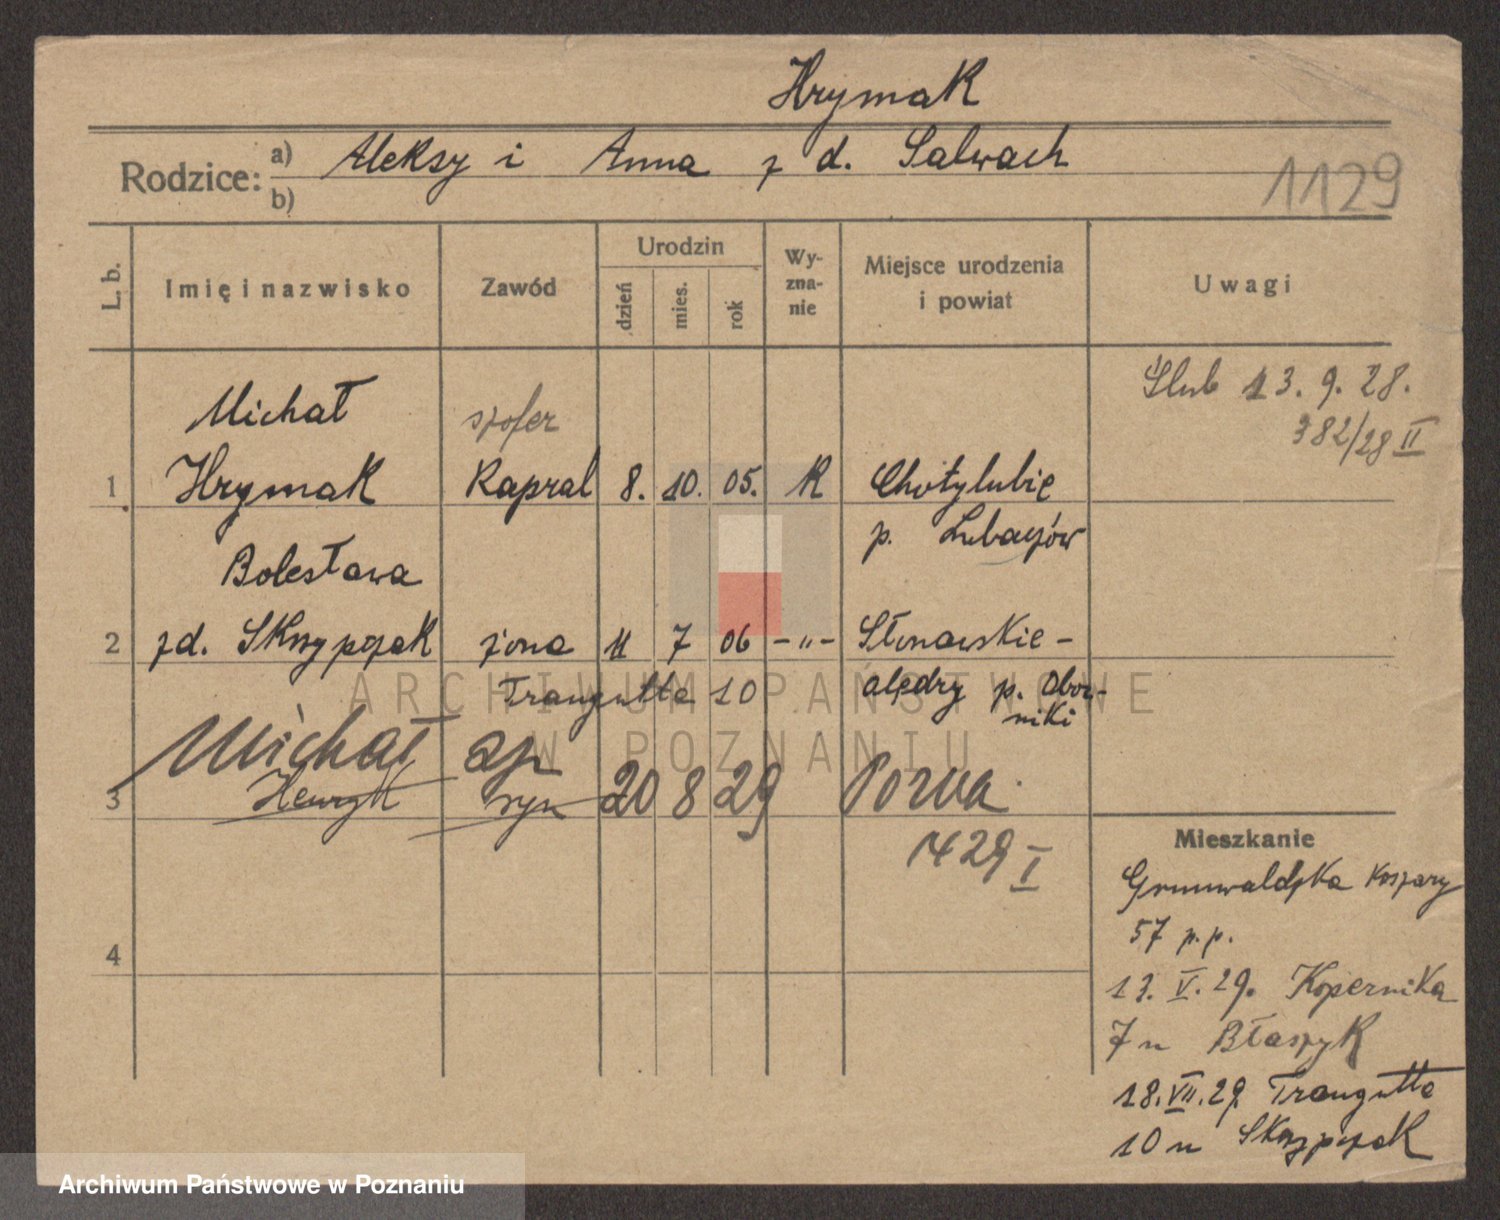 Hrymak
Rodzice: a) Aleksy i Anna z d. Salwach
b)
1129
L. b.
Imię i nazwisko
Zawód
Urodzin
dzień
mies.
rok
Wy-
zna-
nie
Miejsce urodzenia
i powiat
Uwagi
Ślub 13. 9. 28.
382/28 II
Michał szofer
1 Hrymak Kapral 8. 10. 05. R Chotylubie
p. Lubaczów
Bolesława
2 z d. Skrzypczak żona 11 7 06 -"- Słonawskie-
Traugutta 10 olędry p. Obor-
niki
Michał
3 Henryk syn 20 8 29 Pozna
1429 I
4
Mieszkanie
Grunwaldzka Koszary
57 p.p.
13. V. 29. Kopernika
7 u Błaszyk
18. VII. 29 Traugutta
10 u Skrzypczak
ARCHIWUM PAŃSTWOWE
W POZNANIU
Archiwum Państwowe w Poznaniu